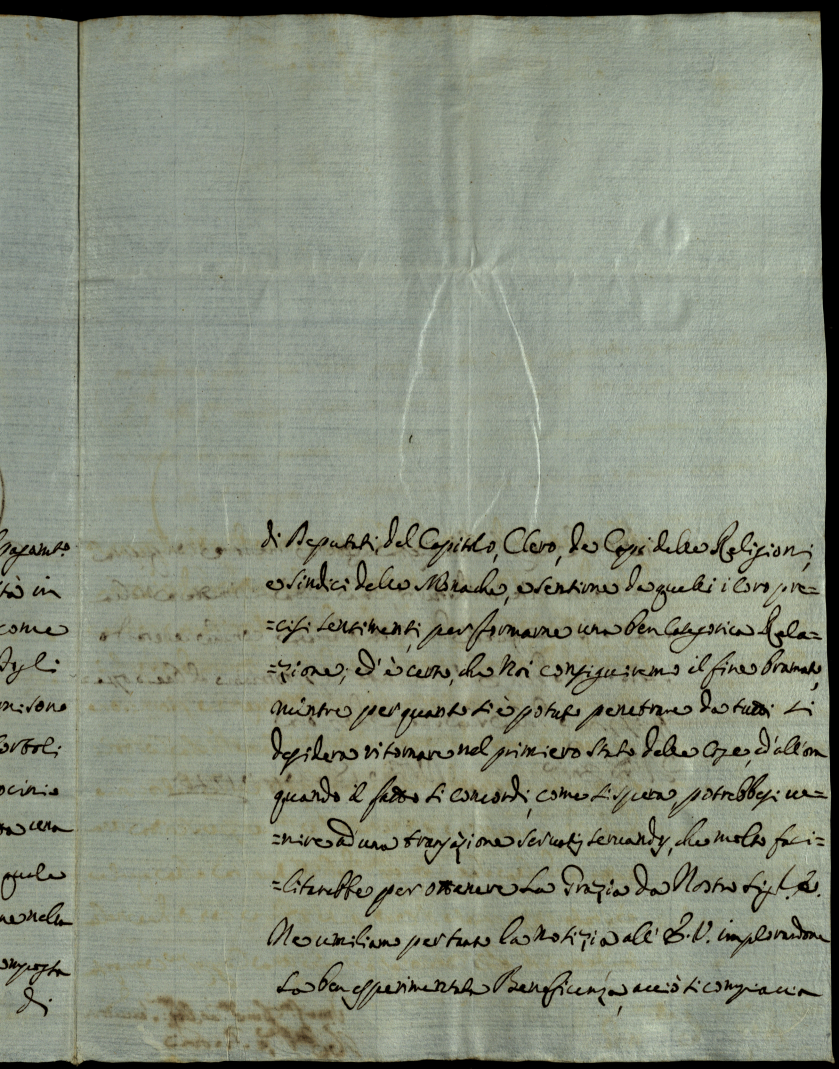 pagam.to
tà in
come
Figli
ni sono
ortoli
ocinio
ta una
quale
ne nella
omposta
di
di Deputati, del Capitolo, Clero, de Capi delle Religioni,
e Sindici delle Monache, e sentirne da quelli i loro pre=
=cisi sentimenti, per formarne una ben Categorica Rela=
=zione; ed' è certo, che Noi conseguiremo il fine bramato,
mentre per quanto si è potuto penetrare da tutti si
desidera ritornare nel primiero Stato delle Cose, ed' allora
quando il fatto si concordi, come si spera potrebbesi ve=
=nire ad una transazione servatis servandis, che molto faci=
=litarebbe per ottenere La Grazia da Nostro Sig.re
Ne umiliamo per tanto la notizia all' E.V. implorandone
La ben esperimentata Beneficenza, acciò si compiaccia